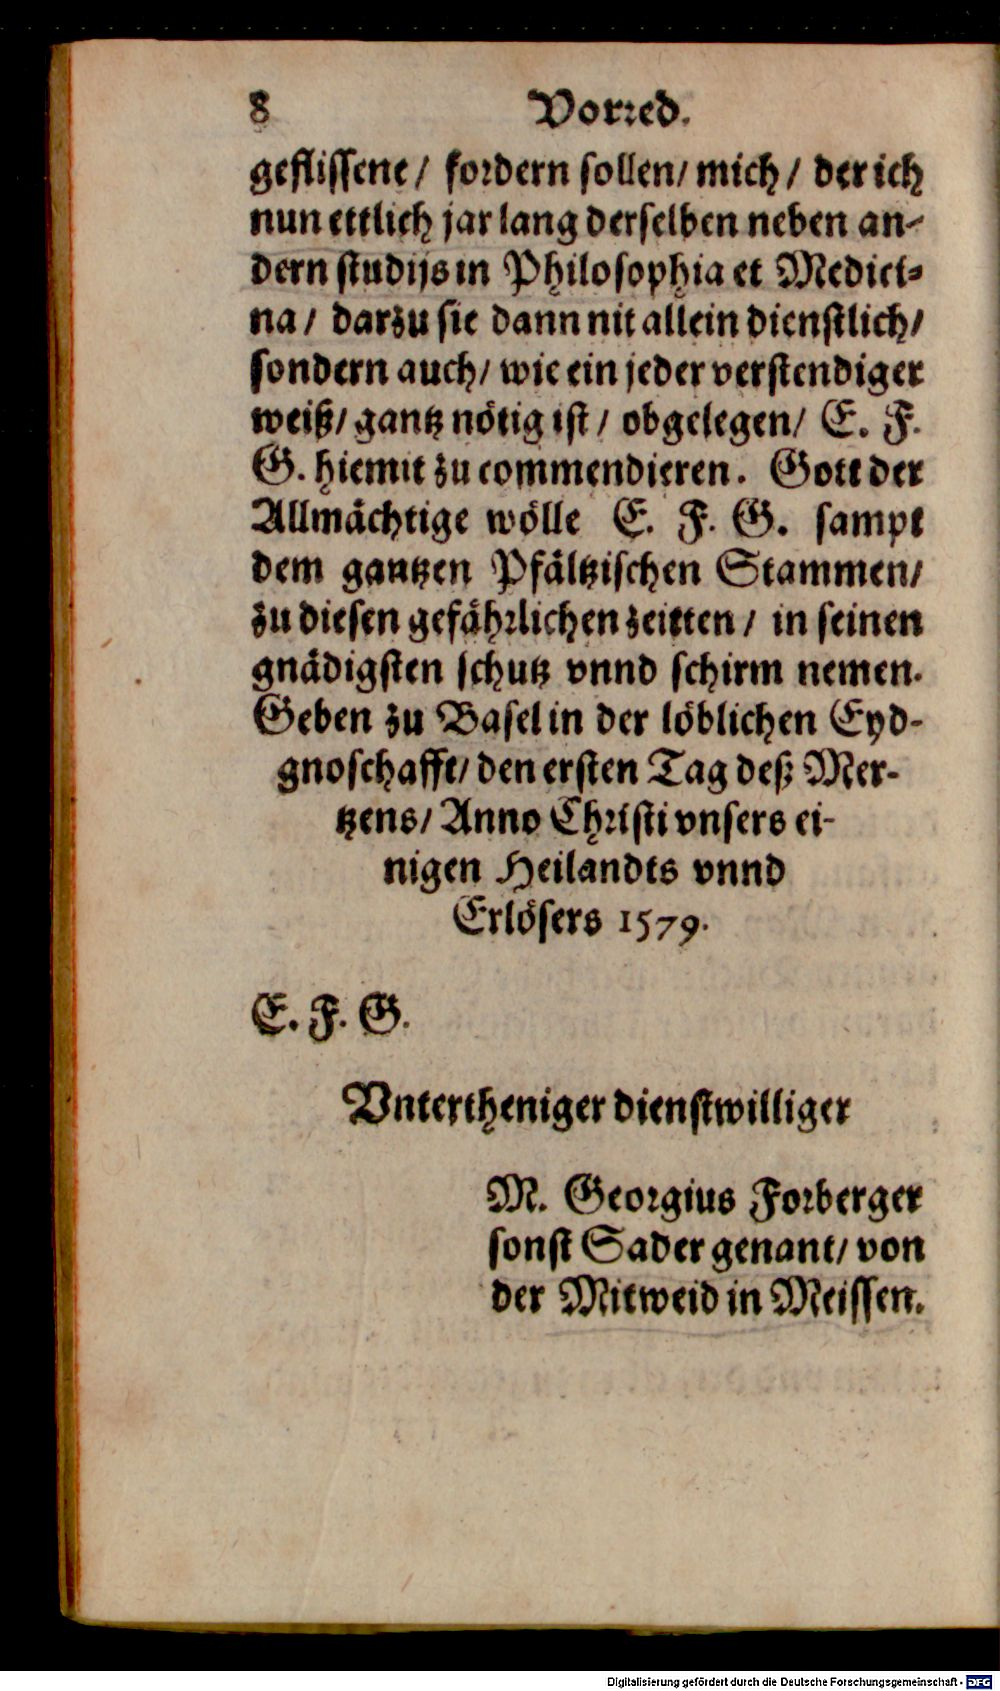 8 Vorred.
geflissene / fordern sollen / mich / der ich
nun ettlich jar lang derselben neben an-
dern studijs in Philosophia et Medici-
na / darzu sie dann nit allein dienstlich /
sondern auch / wie ein jeder verstendiger
weiß / gantz nötig ist / obgelegen / E. F.
G. hiemit zu commendieren. Gott der
Allmächtige wölle E. F. G. sampt
dem gantzen Pfältzischen Stammen /
zu diesen gefährlichen zeitten / in seinen
gnädigsten schutz vnnd schirm nemen.
Geben zu Basel in der löblichen Eyd-
gnoschafft / den ersten Tag deß Mer-
tzens / Anno Christi vnsers ei-
nigen Heilandts vnnd
Erlösers 1579.
E. F. G.
Vntertheniger dienstwilliger
M. Georgius Forberger
sonst Sader genant / von
der Mitweid in Meissen.
Digitalisierung gefördert durch die Deutsche Forschungsgemeinschaft - DFG